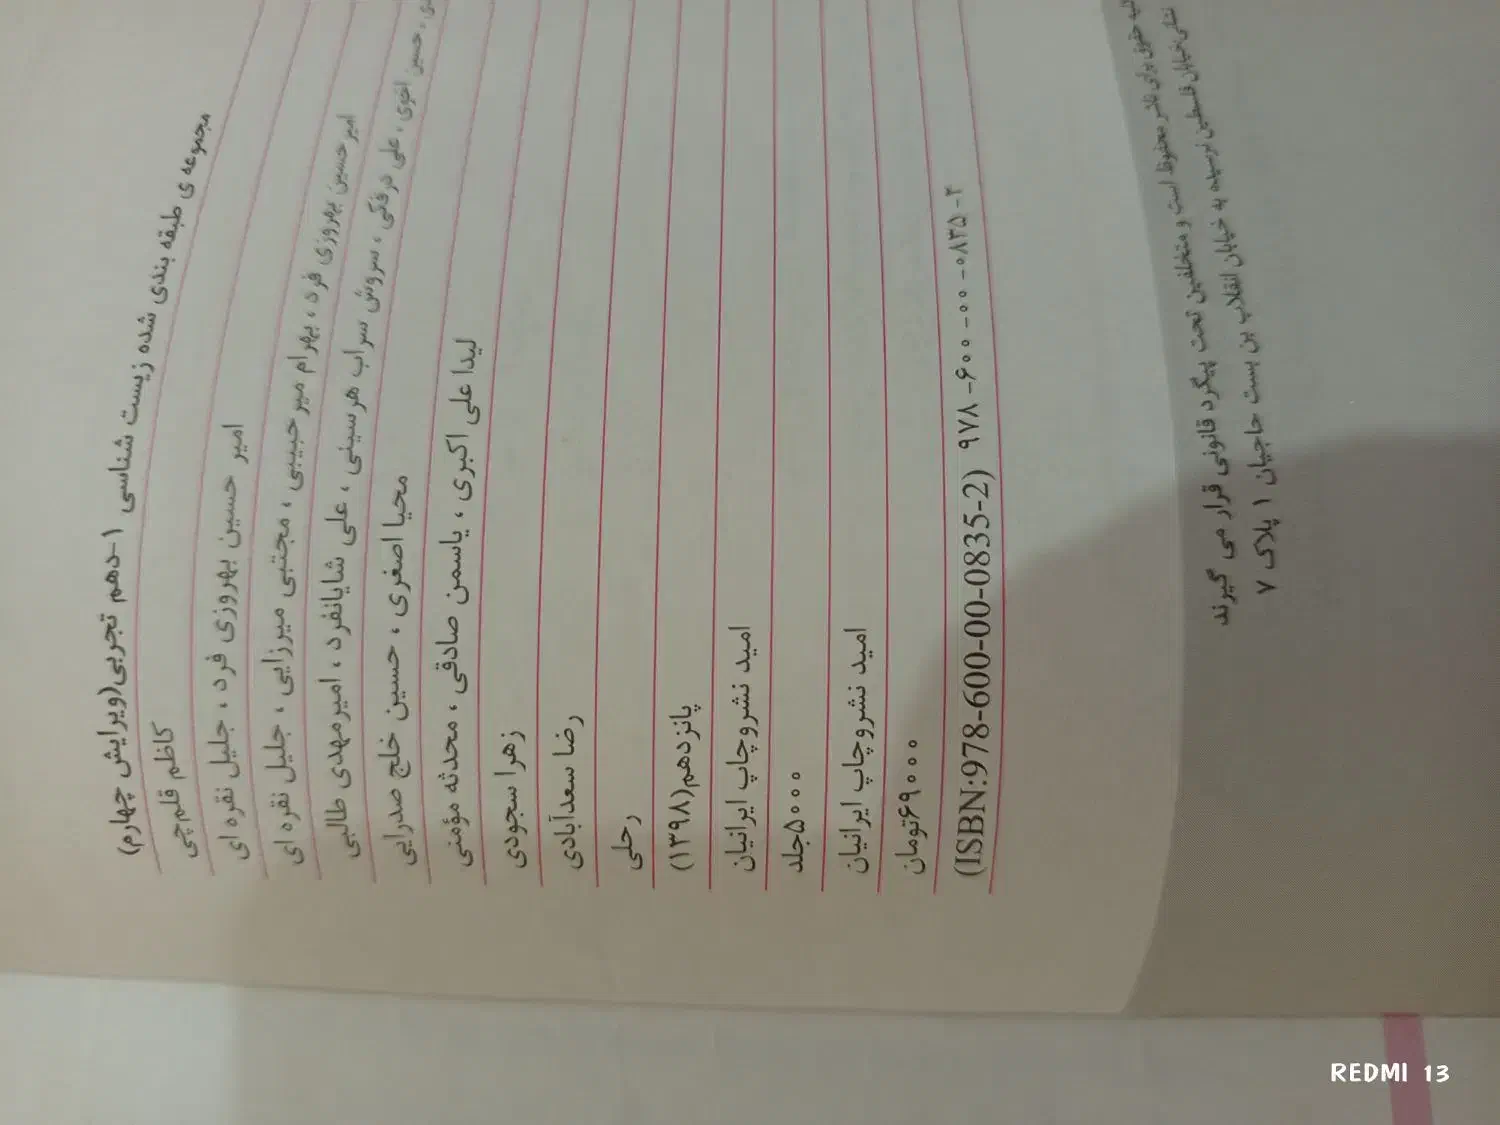 مجموعه ی طبقه بندی شده زیست شناسی ۱-دهم تجربی(ویرایش چهارم)
کاظم قلم‌چی
امیر حسین بهروزی فرد ، جلیل نقره ای
امیر حسین بهروزی فرد ، بهرام میر حبیبی ، مجتبی میرزایی ، جلیل نقره ای
حسین اخوی ، علی درفکی ، سروش سراب هرسینی ، علی شایانفرد ، امیرمهدی طالبی
محیا اصغری ، حسین خلج صدرایی
لیدا علی اکبری ، یاسمن صادقی ، محدثه مؤمنی
زهرا سجودی
رضا سعدآبادی
رحلی
پانزدهم(۱۳۹۸)
امید نشروچاپ ایرانیان
۵۰۰۰جلد
امید نشروچاپ ایرانیان
۶۹۰۰۰تومان
(ISBN:978-600-00-0835-2) ۹۷۸-۶۰۰-۰۰-۰۸۳۵-۲
حقوق برای ناشر محفوظ است و متخلفین تحت پیگرد قانونی قرار می گیرند
نشانی:خیابان فلسطین نرسیده به خیابان انقلاب بن بست حاجیان ۱ پلاک ۷
REDMI 13